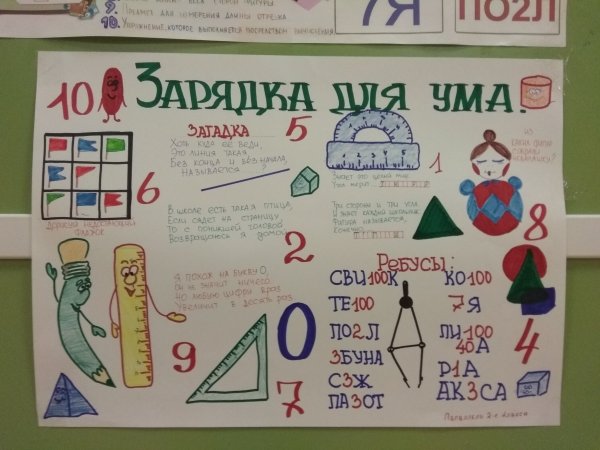 9.
ПРЕДМЕТ ДЛЯ ИЗМЕРЕНИЯ ДЛИНЫ ОТРЕЗКА
10.
7Я
ПО2Л
10
ЗАРЯДКА ДЛЯ УМА.
ЗАГАДКА
Хоть куда её веди,
Это линия такая,
Без конца и без начала,
Называется
5
6
ДОРИСУЙ НЕДОСТАЮЩИЙ
ФЛАЖОК
1
Знает это целый мир:
Угол мерит
ИЗ
КАКИХ ФИГУР
СОБРАЛИ
НЕВАЛЯШКУ?
В школе есть такая птица,
Если сядет на страницу,
То с поникшей головой
Возвращаюсь я домой
2
Три стороны и три угла.
И знает каждый школьник:
Фигура называется,
Конечно
8
Я похож на букву О,
Он не значит ничего
Но любую цифру враз
Увеличит в десять раз
0
9
7
4
РЕБУСЫ:
СВИ100К
ТЕ100
ПО2Л
3БУНА
С3Ж
ПА3ОТ
КО100
7Я
ПИ100
40А
Р1А
АК3СА